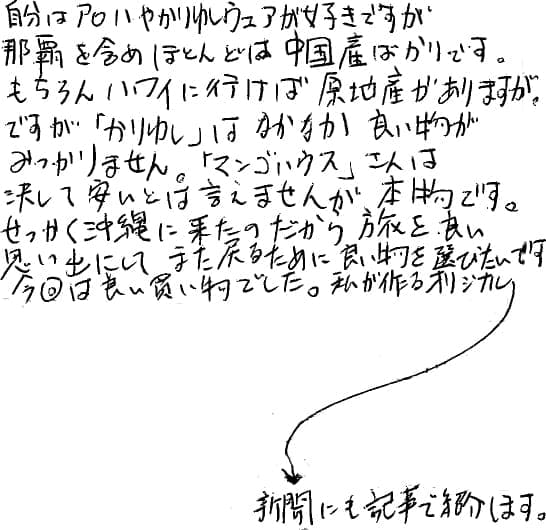 自分はアロハやかりゆしウェアが好きですが
那覇を含めほとんどは中国産ばかりです。
もちろんハワイに行けば原地産がありますが。
ですが「かりゆし」はなかなか良い物が
みつかりません。「マンゴハウス」さんは
決して安いとは言えませんが、本物です。
せっかく沖縄に来たのだから旅を良い
思い出にして また戻るために良い物を選びたいです
今回は良い買い物でした。私が作るオリジナル
新聞にも記事で紹介します。